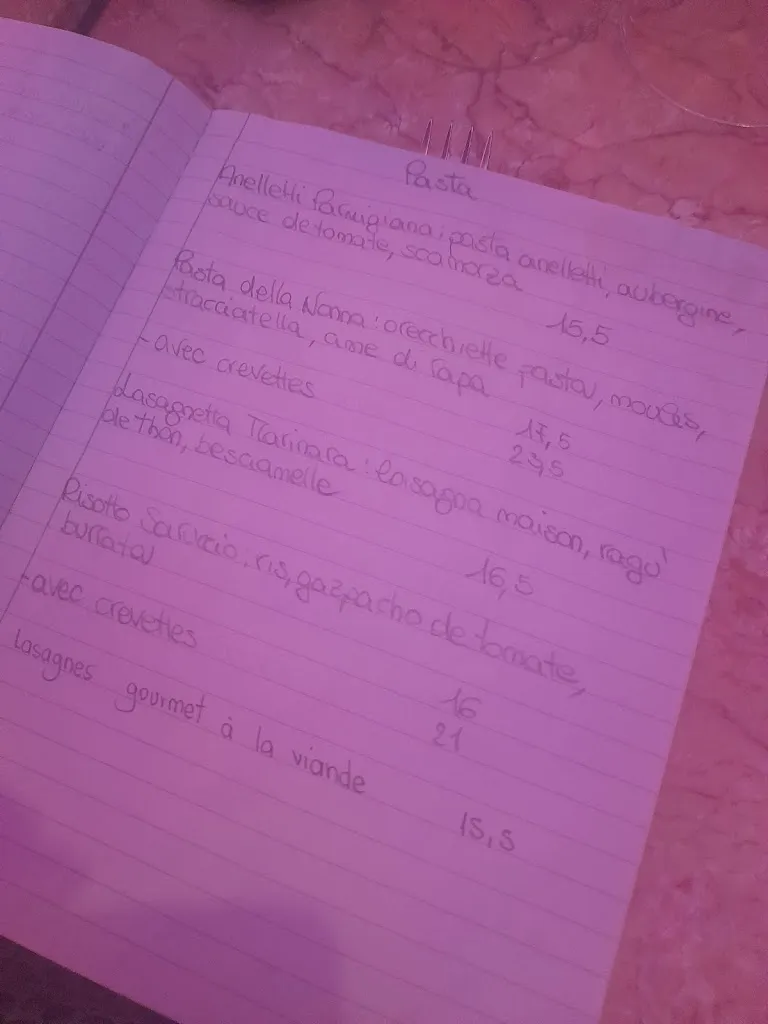 Pasta
Anelletti Parmigiana : pasta anelletti, aubergine,
sauce de tomate, scamorza
15,5
Pasta della Nonna : orecchiette pasta, moules,
stracciatella, cime di rapa
17,5
-avec crevettes
23,5
Lasagnetta Marinara : lasagna maison, ragù
de thon, besciamelle
16,5
Risotto , ris, gazpacho de tomate,
burrata
16
-avec crevettes
21
Lasagnes gourmet à la viande
15,5